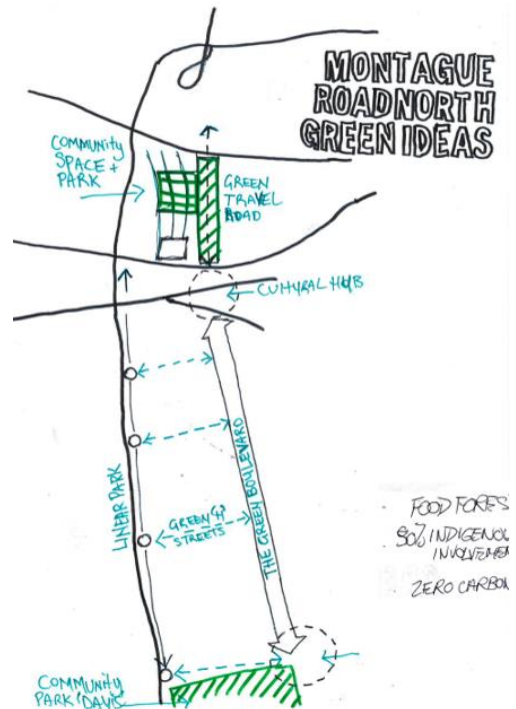 MONTAGUE
ROAD NORTH
GREEN IDEAS
COMMUNITY
SPACE +
PARK
GREEN
TRAVEL
ROAD
CULTURAL HUB
LINEAR PARK
GREEN
STREETS
THE GREEN BOULEVARD
FOOD FORES
INDIGENOU
INVOLVEMEN
ZERO CARBON
COMMUNITY
PARK 'DAVIS'